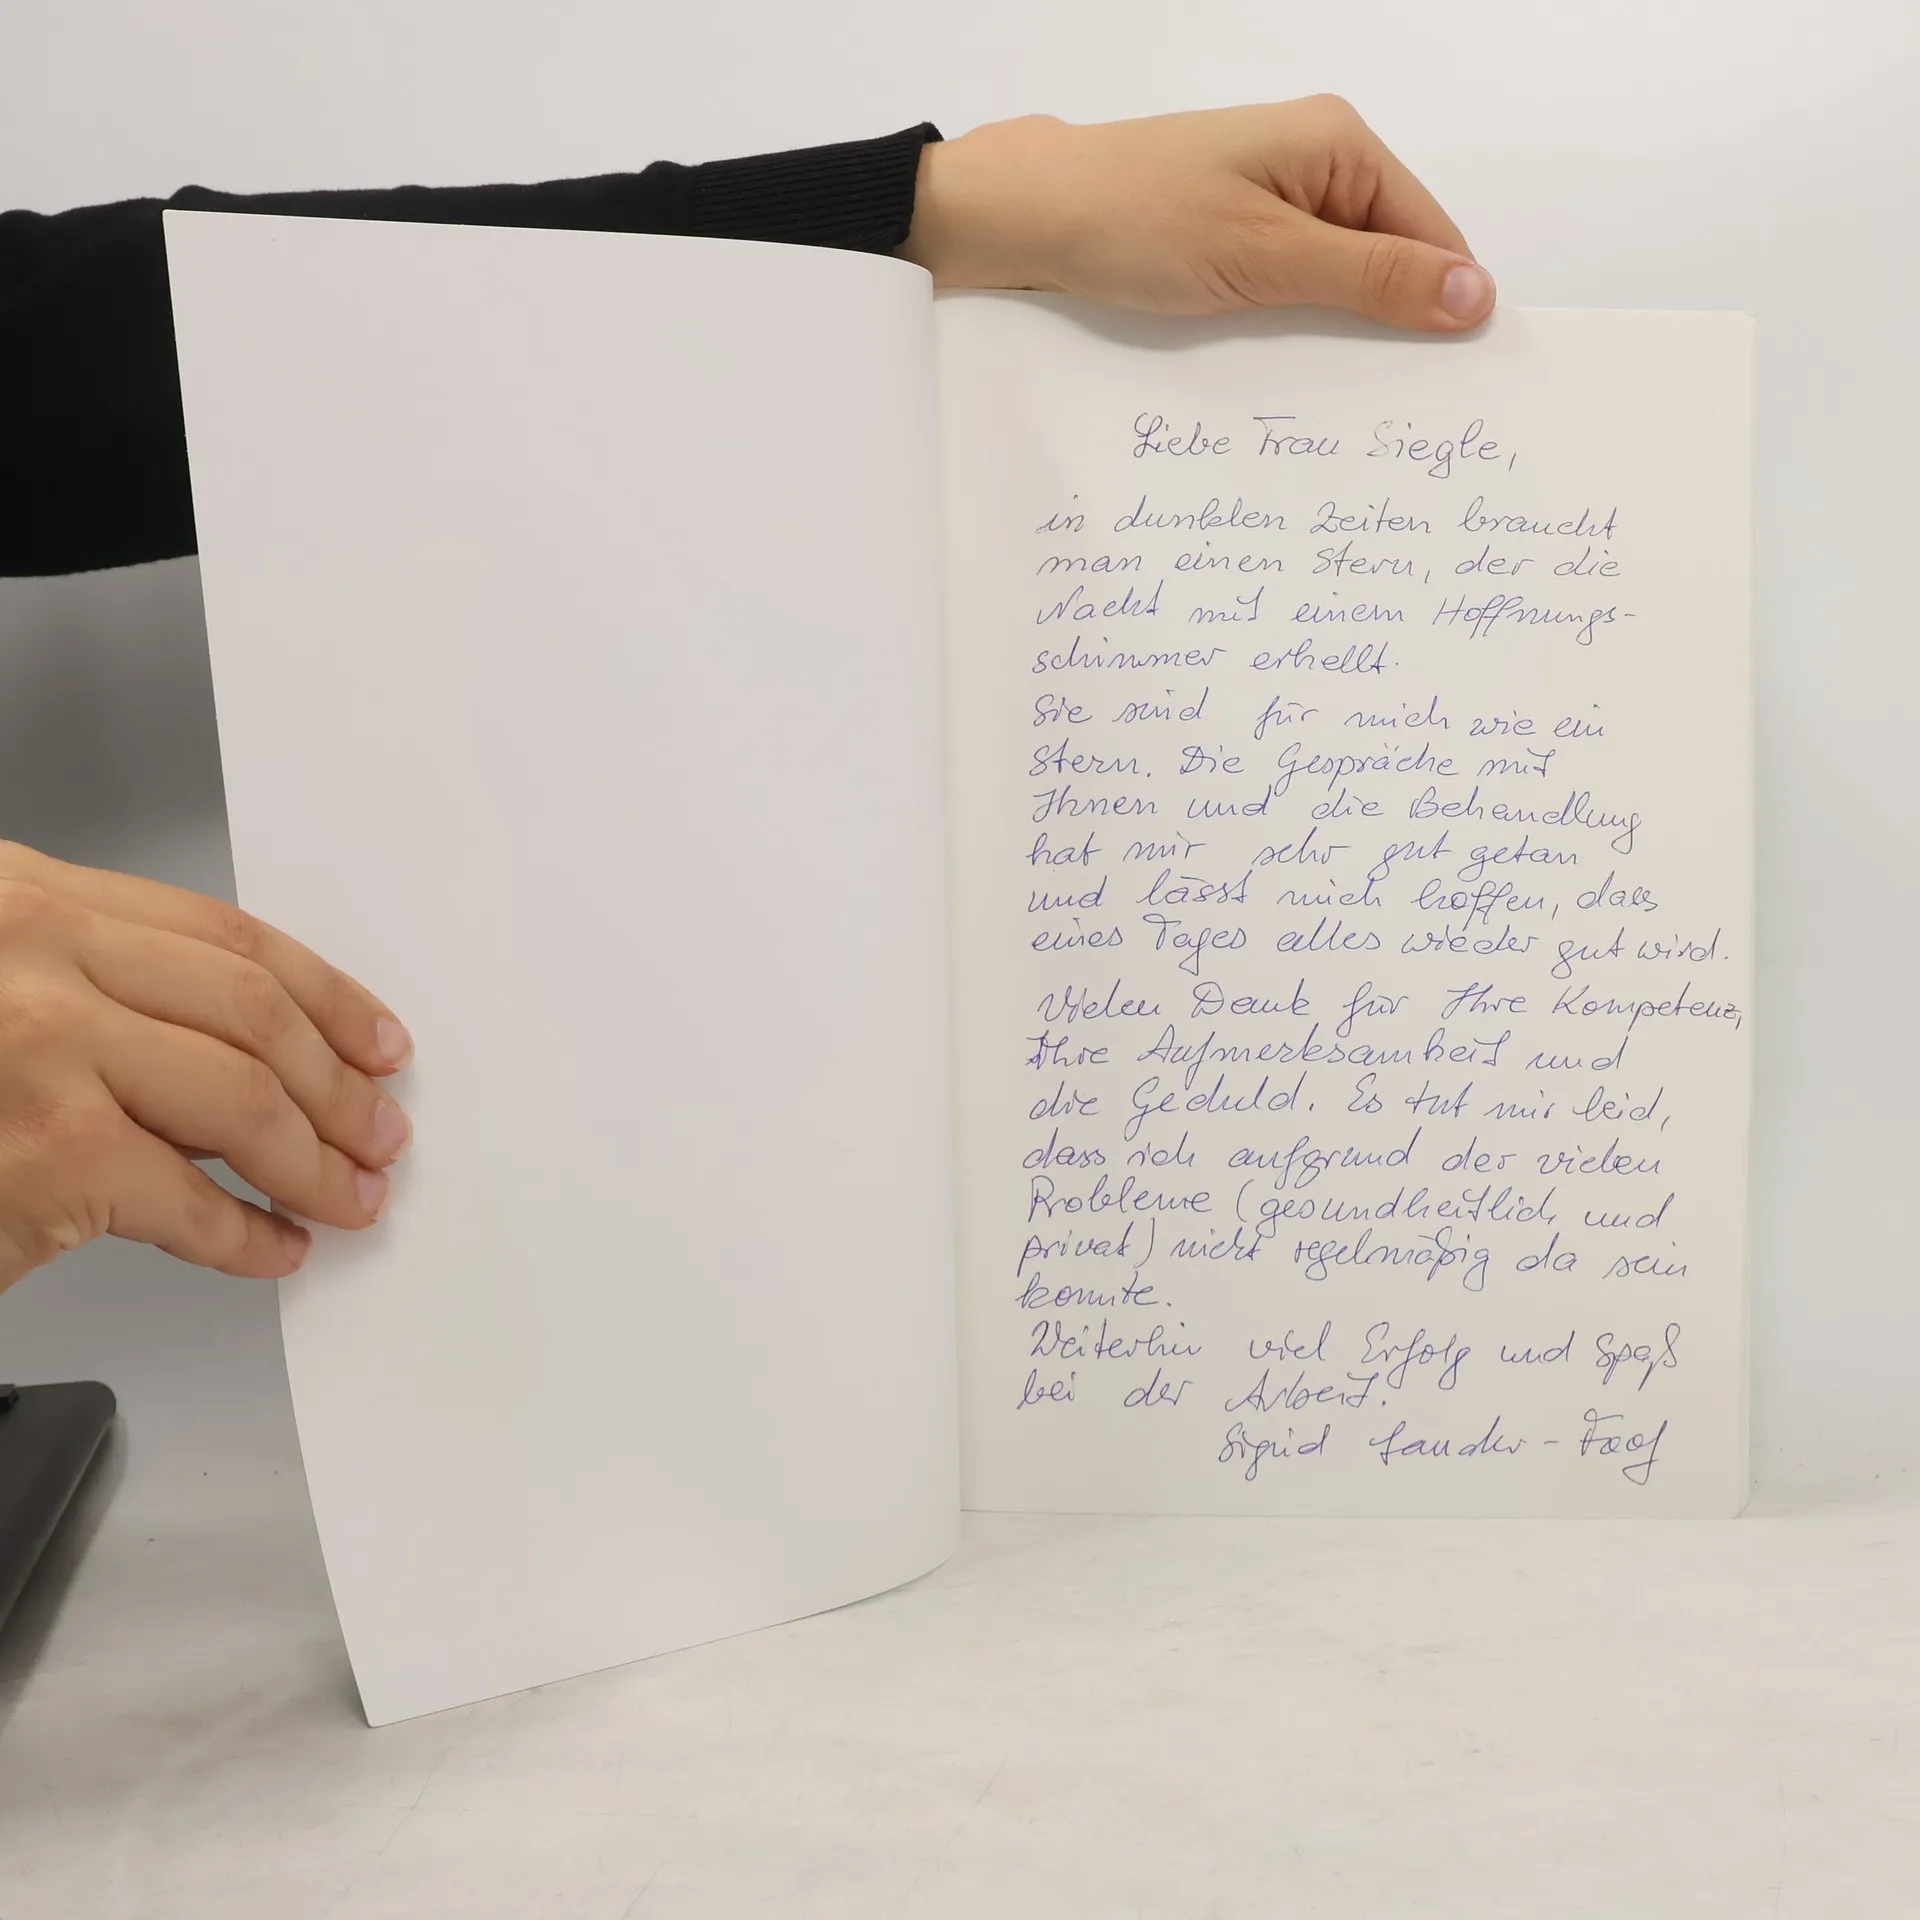 Liebe Frau Siegle,
in dunklen Zeiten braucht
man einen Stern, der die
Nacht mit einem Hoffnungs-
schimmer erhellt.
Sie sind für mich wie ein
Stern. Die Gespräche mit
Ihnen und die Behandlung
hat mir sehr gut getan
und lässt mich hoffen, dass
eines Tages alles wieder gut wird.
Vielen Dank für Ihre Kompetenz,
Ihre Aufmerksamkeit und
die Geduld. Es tut mir leid,
dass ich aufgrund der vielen
Probleme (gesundheitlich und
privat) nicht regelmäßig da sein
konnte.
Weiterhin viel Erfolg und Spaß
bei der Arbeit.
Sigrid